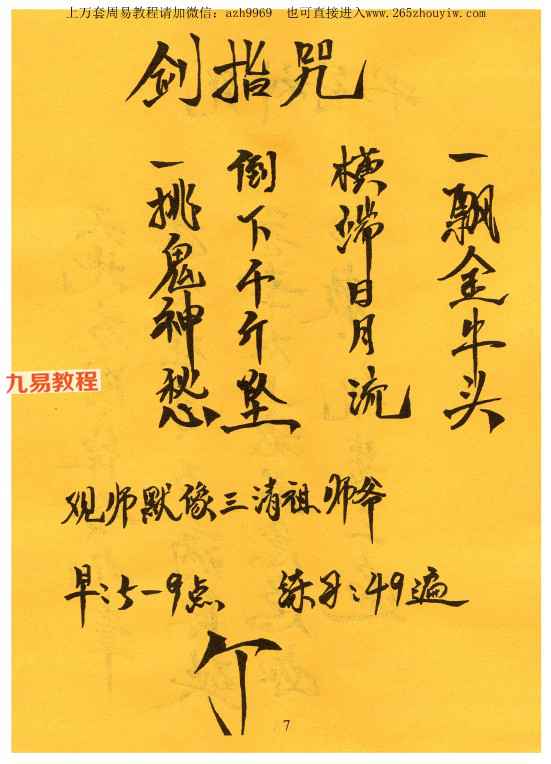 上万套周易教程请加微信：azh9969　也可直接进入www.265zhouyiw.com
剑指咒
一飘金牛头
横端日月流
倒下千斤坠
一挑鬼神愁
九易教程
观师默像三清祖师爷
早：5-9点　练习：49遍
7